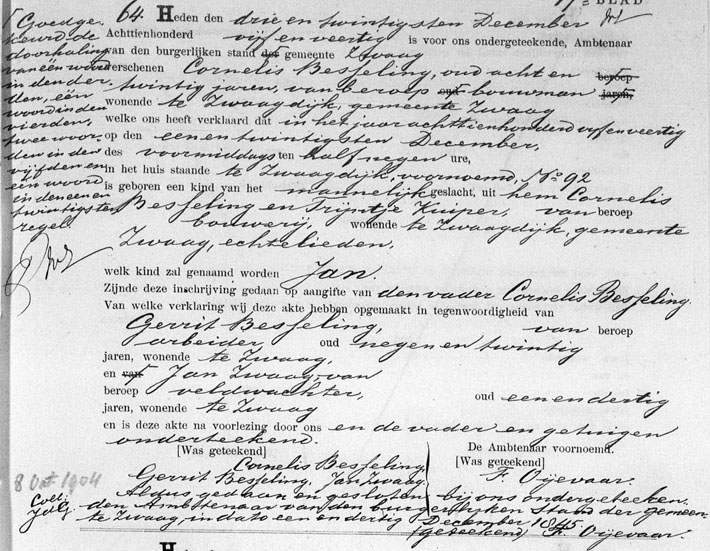 BLAD
64. Heden den drie en twintigsten December
Achttienhonderd vijf en veertig is voor ons ondergeteekende, Ambtenaar
van den burgerlijken stand der gemeente Zwaag
verschenen Cornelis Besseling, oud acht en beroep
twintig jaren, van beroep oud bouwman jaren,
wonende te Zwaagdijk, gemeente Zwaag
welke ons heeft verklaard dat in het jaar achttienhonderd vyf en veertig
op den een en twintigsten December,
des voormiddags ten half negen ure,
in het huis staande te Zwaagdijk, voornoemd, No 92
is geboren een kind van het mannelijk geslacht, uit hem Cornelis
Besseling en Trijntje Kuiper, van beroep
bouwerij, wonende te Zwaagdijk, gemeente
Zwaag, echtelieden,
welk kind zal genaamd worden Jan.
Zijnde deze inschrijving gedaan op aangifte van den vader Cornelis Besseling.
Van welke verklaring wij deze akte hebben opgemaakt in tegenwoordigheid van
Gerrit Besseling, van beroep
arbeider, oud negen en twintig
jaren, wonende te Zwaag,
en van Jan Zwaag, van
beroep veldwachter, oud een en dertig
jaren, wonende te Zwaag
en is deze akte na voorlezing door ons en de vader en getuigen
onderteekend.
[Was geteekend]
Cornelis Besseling,
Gerrit Besseling, Jan Zwaag.
De Ambtenaar voornoemd.
[Was geteekend]
F. Oijevaar.
Aldus gedaan en gesloten bij ons ondergeteeken-
den Ambtenaar van den burgerlijken Stand der gemeen-
te Zwaag, in dato een en dertig December 1845.
(geteekend) F. Oijevaar.
Goedge-
keurd de
doorhaling
van één woord
in den der-
den, één
woord in den
vierden,
twee woor-
den in den
vijfden en
een woord
in den een en
twintigsten
regel
8 Oct 1904
Coll: